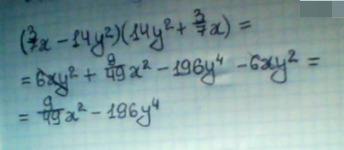 (3/7x - 14y²)(14y² + 3/7x) =
= 6xy² + 9/49x² - 196y⁴ - 6xy² =
= 9/49x² - 196y⁴